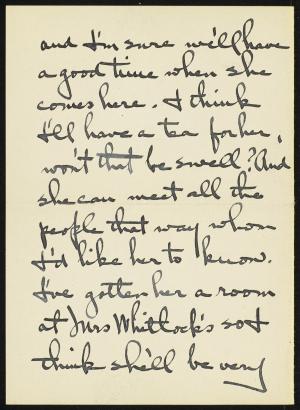 and I'm sure we'll have
a good time when she
comes here. I think
I'll have a tea for her,
won't that be swell? And
she can meet all the
people that way whom
I'd like her to know.
I've gotten her a room
at Mrs Whitlock's so I
think she'll be very